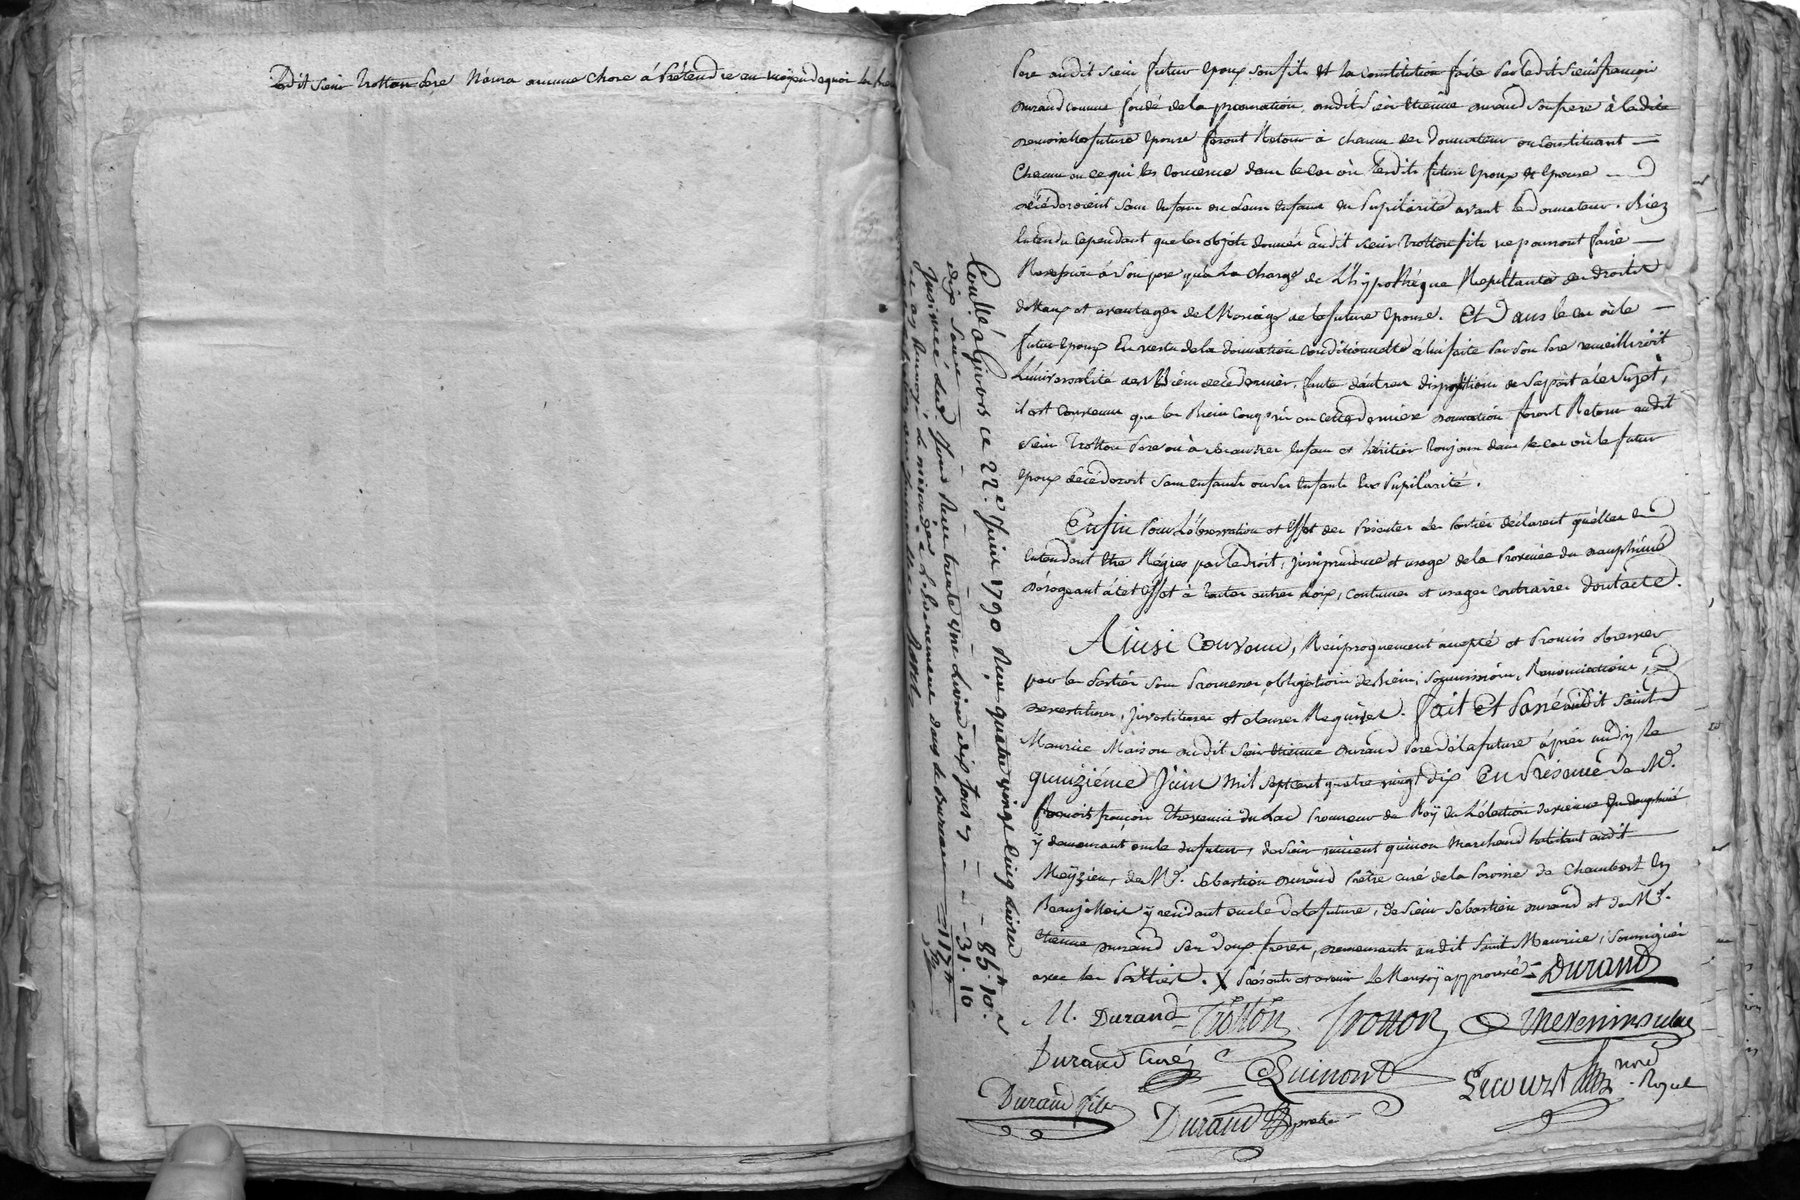 ledit sieur Trotton Pere N'aura aucune chose à Prétendre au moyen de quoi les
Pere audit sieur futur epoux son fils et La Constitution faite Par ledit sieur françois
Durand comme fondé de la procuration dudit sieur Etienne Durand son pere à ladite
Demoiselle future epouse feront Retour à chacun des Donnateur ou Constituant
Chacun en ce qui les concerne dans le cas où lesdits futurs epoux et epouse
décéderoient sans enfans ou leurs enfans en Pupilarité avant le Donnateur. Bien
Entendu cependant que les objets donnés audit sieur Trotton fils ne pourront faire
Reversion à son pere qu'à La charge de L'hypothéque Resultante des droits
dottaux et avantages de Mariage de la future epouse. Et Dans le cas où le
futur epoux En vertu de la donnation conditionnelle à lui faite Par son Pere recueilliroit
L'universalité des Biens de ce dernier, faute d'autres dispositions de sa part à ce Sujet,
il est convenu que les Biens compris en cette derniere donnation feront Retour audit
sieur Trotton Pere ou à ses autres enfans et héritiers toujours dans le cas où le futur
epoux décéderoit sans enfants ou ses enfants En Pupilarité.
Enfin Pour L'observation et effet des Présentes les Parties déclarent qu'elles
Entendent Etre Régies par le droit, jurisprudence et usage de la Province du Dauphiné
Dérogeant à cet effet à toutes autres Loix, coutumes et usages contraires Dont acte.
Ainsi Convenu, Réciproquement accepté et Promis observer
par les Parties sous Promesses, obligations de Biens, Soumissions, Renonciations,
Devestitures, Investitures et clauses Requises. Fait et Passé audit Saint
Maurice Maison audit sieur Etienne Durand Pere de la future après midy le
quinziéme Juin Mil sept cent quatre vingt dix En Présence de Mr.
françois Thevenin du Lac Procureur du Roÿ En L'élection de vienne En dauphiné
ÿ demeurant oncle du futur, de sieur vincent quinon Marchand habitant audit
Meÿzieu, de Mr. Sebastien Durand Prêtre curé de la Paroisse de Chambost En
Beaujollois ÿ residant oncle de la future, de sieur Sebastien Durand et de Mr.
Etienne Durand ses Deux freres, demeurants audit Saint Maurice, Soussignés
avec les Parties. X Présents et avenir Le Renvoÿ approuvé. Durand
M. Durand Trotton Trotton Thevenin du lac
Durand Curé Quinon
Durand fils Durand
Noire
Royal
Conllé à Givors ce 22e. Juin 1790 Reçu quatre vingt cinq livres
dix sous 85# 10s.
Insinué dud Jour Reçu trente une Livres dix sous 31. 10
117#